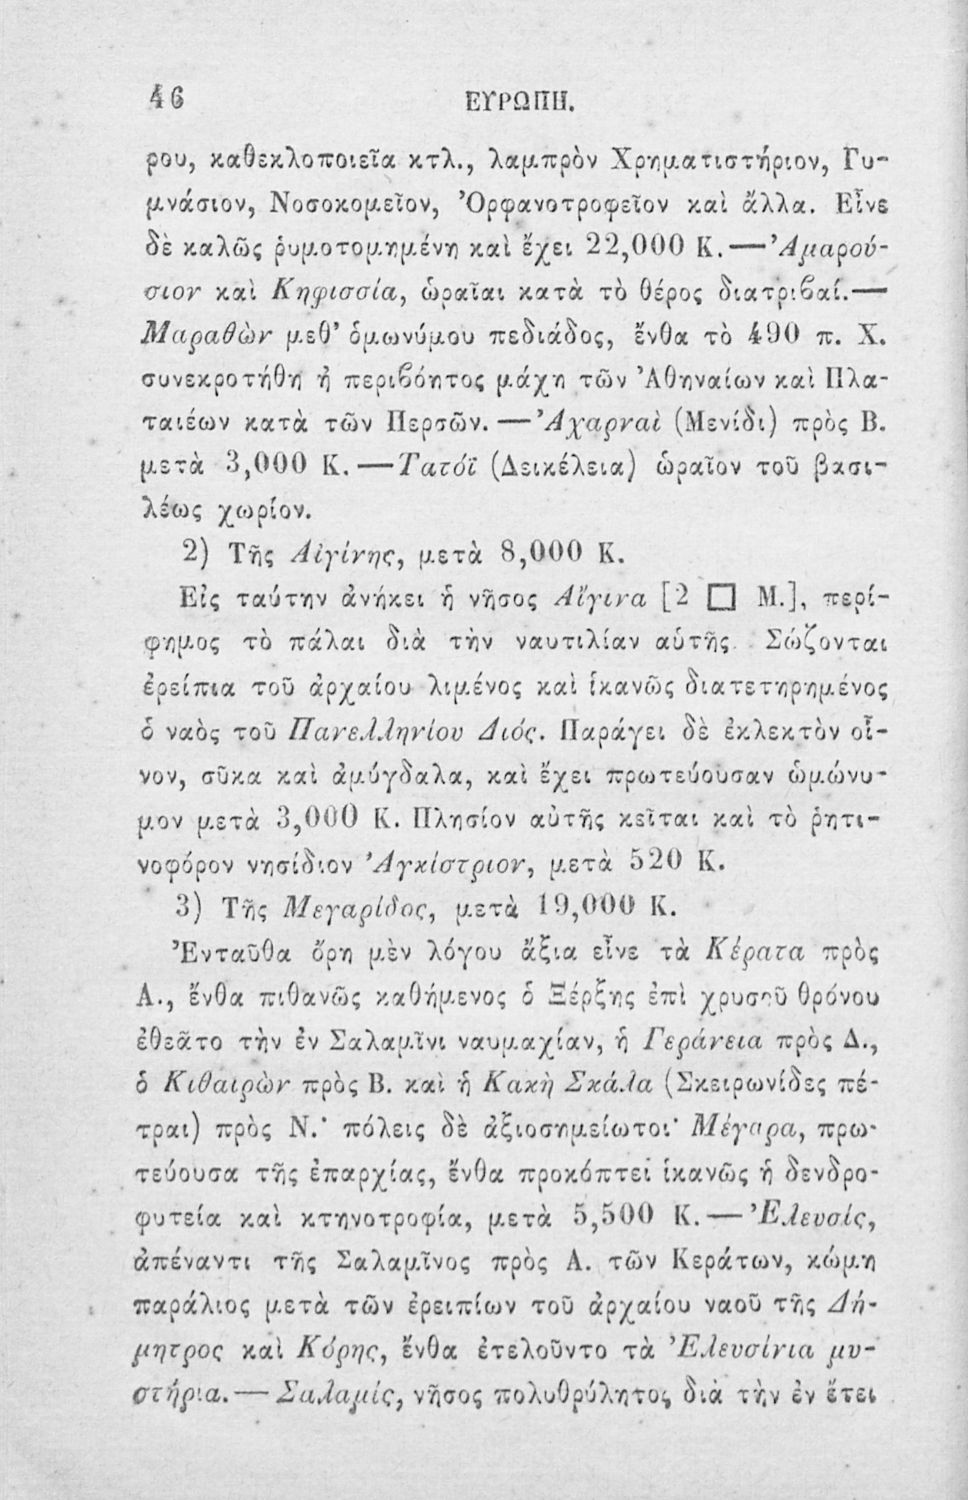 46 ΕΥΡΩΠΗ.
ρου, καθεκλοποιεῖα κτλ., λαμπρὸν Χρηματιστήριον, Γυ-
μνάσιον, Νοσοκομεῖον, Ὀρφανοτροφεῖον καὶ ἄλλα. Εἶνε
δὲ καλῶς ῥυμοτομημένη καὶ ἔχει 22,000 Κ.—Ἀμαρού-
σιον καὶ Κηφισσία, ὡραῖαι κατὰ τὸ θέρος διατριϐαί.—
Μαραθὼν μεθ’ ὁμωνύμου πεδιάδος, ἔνθα τὸ 490 π. Χ.
συνεκροτήθη ἡ περιϐόητος μάχη τῶν Ἀθηναίων καὶ Πλα-
ταιέων κατὰ τῶν Περσῶν.—Ἀχαρναὶ (Μενίδι) πρὸς Β.
μετὰ 3,000 Κ.—Τατόϊ (Δεικέλεια) ὡραῖον τοῦ βασι-
λέως χωρίον.
2) Τῆς Αἰγίνης, μετὰ 8,000 Κ.
Εἰς ταύτην ἀνήκει ἡ νῆσος Αἴγινα [2 □ Μ.], περί-
φημος τὸ πάλαι διὰ τὴν ναυτιλίαν αὑτῆς. Σώζονται
ἐρείπια τοῦ ἀρχαίου λιμένος καὶ ἱκανῶς διατετηρημένος
ὁ ναὸς τοῦ Πανελληνίου Διός. Παράγει δὲ ἐκλεκτὸν οἶ-
νον, σῦκα καὶ ἀμύγδαλα, καὶ ἔχει πρωτεύουσαν ὡμώνυ-
μον μετὰ 3,000 Κ. Πλησίον αὐτῆς κεῖται καὶ τὸ ῥητι-
νοφόρον νησίδιον Ἀγκίστριον, μετὰ 520 Κ.
3) Τῆς Μεγαρίδος, μετὰ 19,000 Κ.
Ἐνταῦθα ὄρη μὲν λόγου ἄξια εἶνε τὰ Κέρατα πρὸς
Α., ἔνθα πιθανῶς καθήμενος ὁ Ξέρξης ἐπὶ χρυσοῦ θρόνου
ἐθεᾶτο τὴν ἐν Σαλαμῖνι ναυμαχίαν, ἡ Γεράνεια πρὸς Δ.,
ὁ Κιθαιρὼν πρὸς Β. καὶ ἡ Κακὴ Σκάλα (Σκειρωνίδες πέ-
τραι) πρὸς Ν.· πόλεις δὲ ἀξιοσημείωτοι· Μέγαρα, πρω-
τεύουσα τῆς ἐπαρχίας, ἔνθα προκόπτει ἱκανῶς ἡ δενδρο-
φυτεία καὶ κτηνοτροφία, μετὰ 5,500 Κ.—Ἐλευσίς,
ἀπέναντι τῆς Σαλαμῖνος πρὸς Α. τῶν Κεράτων, κώμη
παράλιος μετὰ τῶν ἐρειπίων τοῦ ἀρχαίου ναοῦ τῆς Δή-
μητρος καὶ Κόρης, ἔνθα ἐτελοῦντο τὰ Ἐλευσίνια μυ-
στήρια.—Σαλαμίς, νῆσος πολυθρύλητος διὰ τὴν ἐν ἔτει